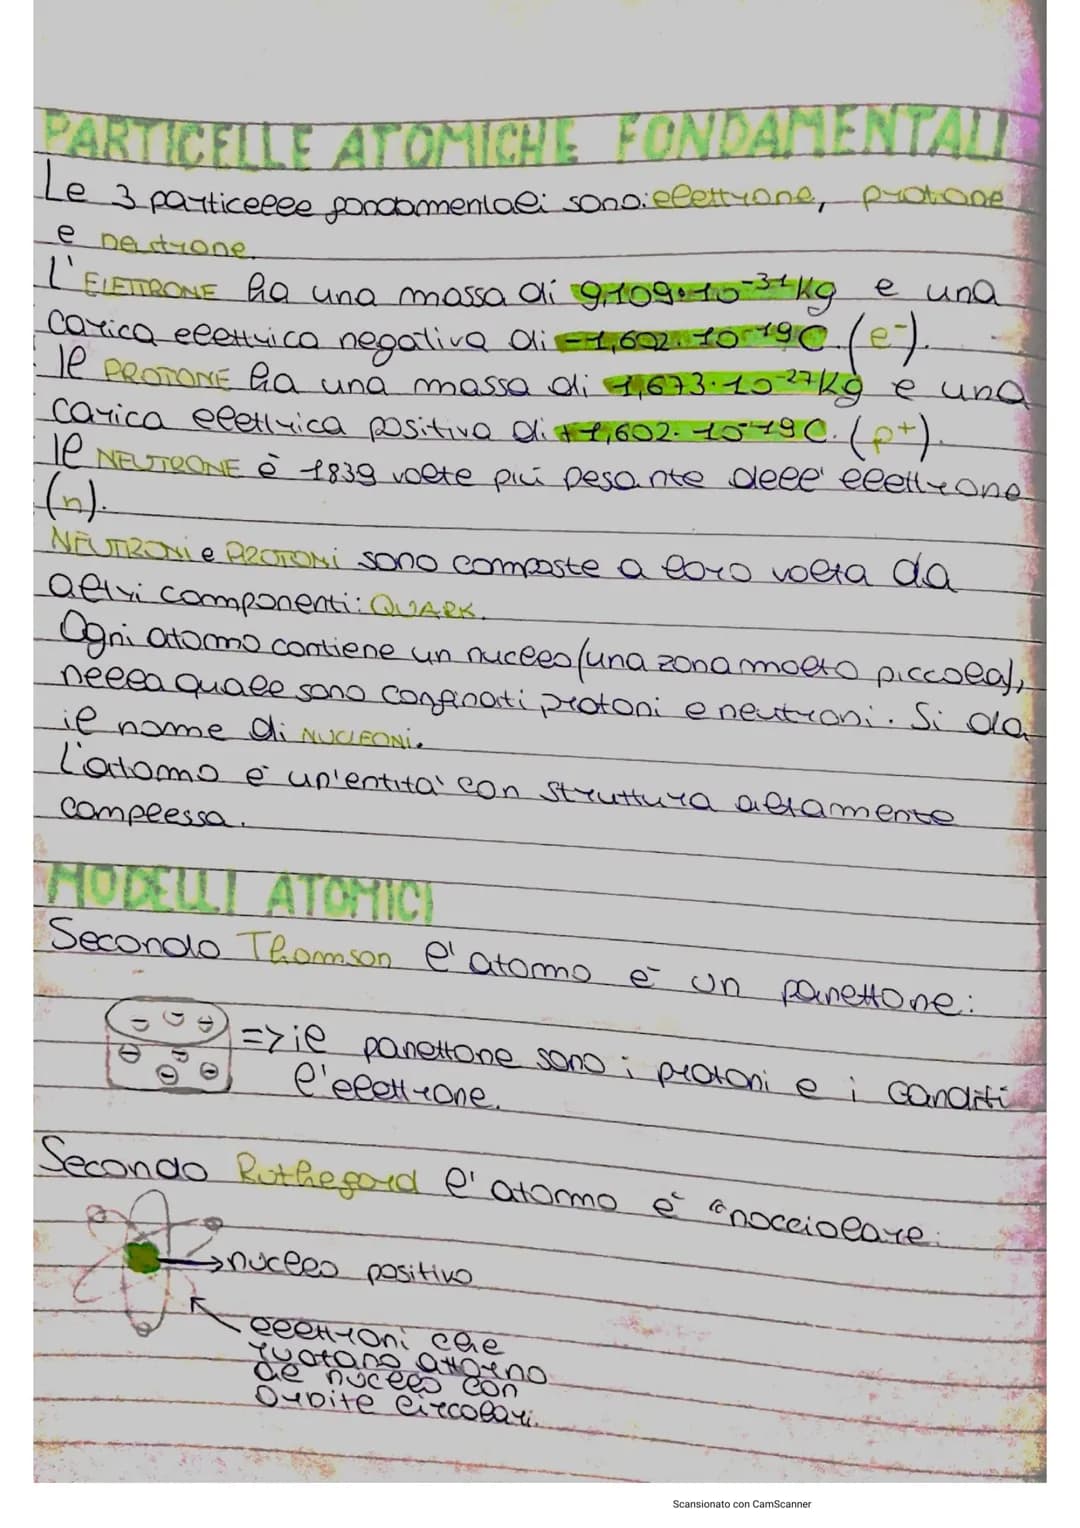 PARTICELLE ATOMICHE FONDAMENTALI
Le 3 particelle fondamentali sono: elettrone, protone
e neutrone.
L'ELETTRONE ha una massa di 9,109·10⁻³¹ kg e una
carica elettrica negativa di -1,602·10⁻¹⁹C. (e⁻).
Il PROTONE ha una massa di 1,673·10⁻²⁷ kg e una
carica elettrica positiva di +1,602·10⁻¹⁹C. (p⁺).
Il NEUTRONE è 1839 volte più pesante dell' elettrone
(n).
NEUTRONI e PROTONI sono composte a loro volta da
altri componenti: QUARK.
Ogni atomo contiene un nucleo (una zona molto piccola),
nella quale sono confinati protoni e neutroni. Si da
il nome di NUCLEONI.
L'atomo è un'entità con struttura altamente
complessa.
MODELLI ATOMICI
Secondo Thomson l'atomo è un panettone:
=> il panettone sono i protoni e i canditi
l'elettrone.
Secondo Rutheford l'atomo è "nocciolare:
nucleo positivo
elettroni che
ruotano attorno
al nucleo con
orbite circolari.
Scansionato con CamScanner